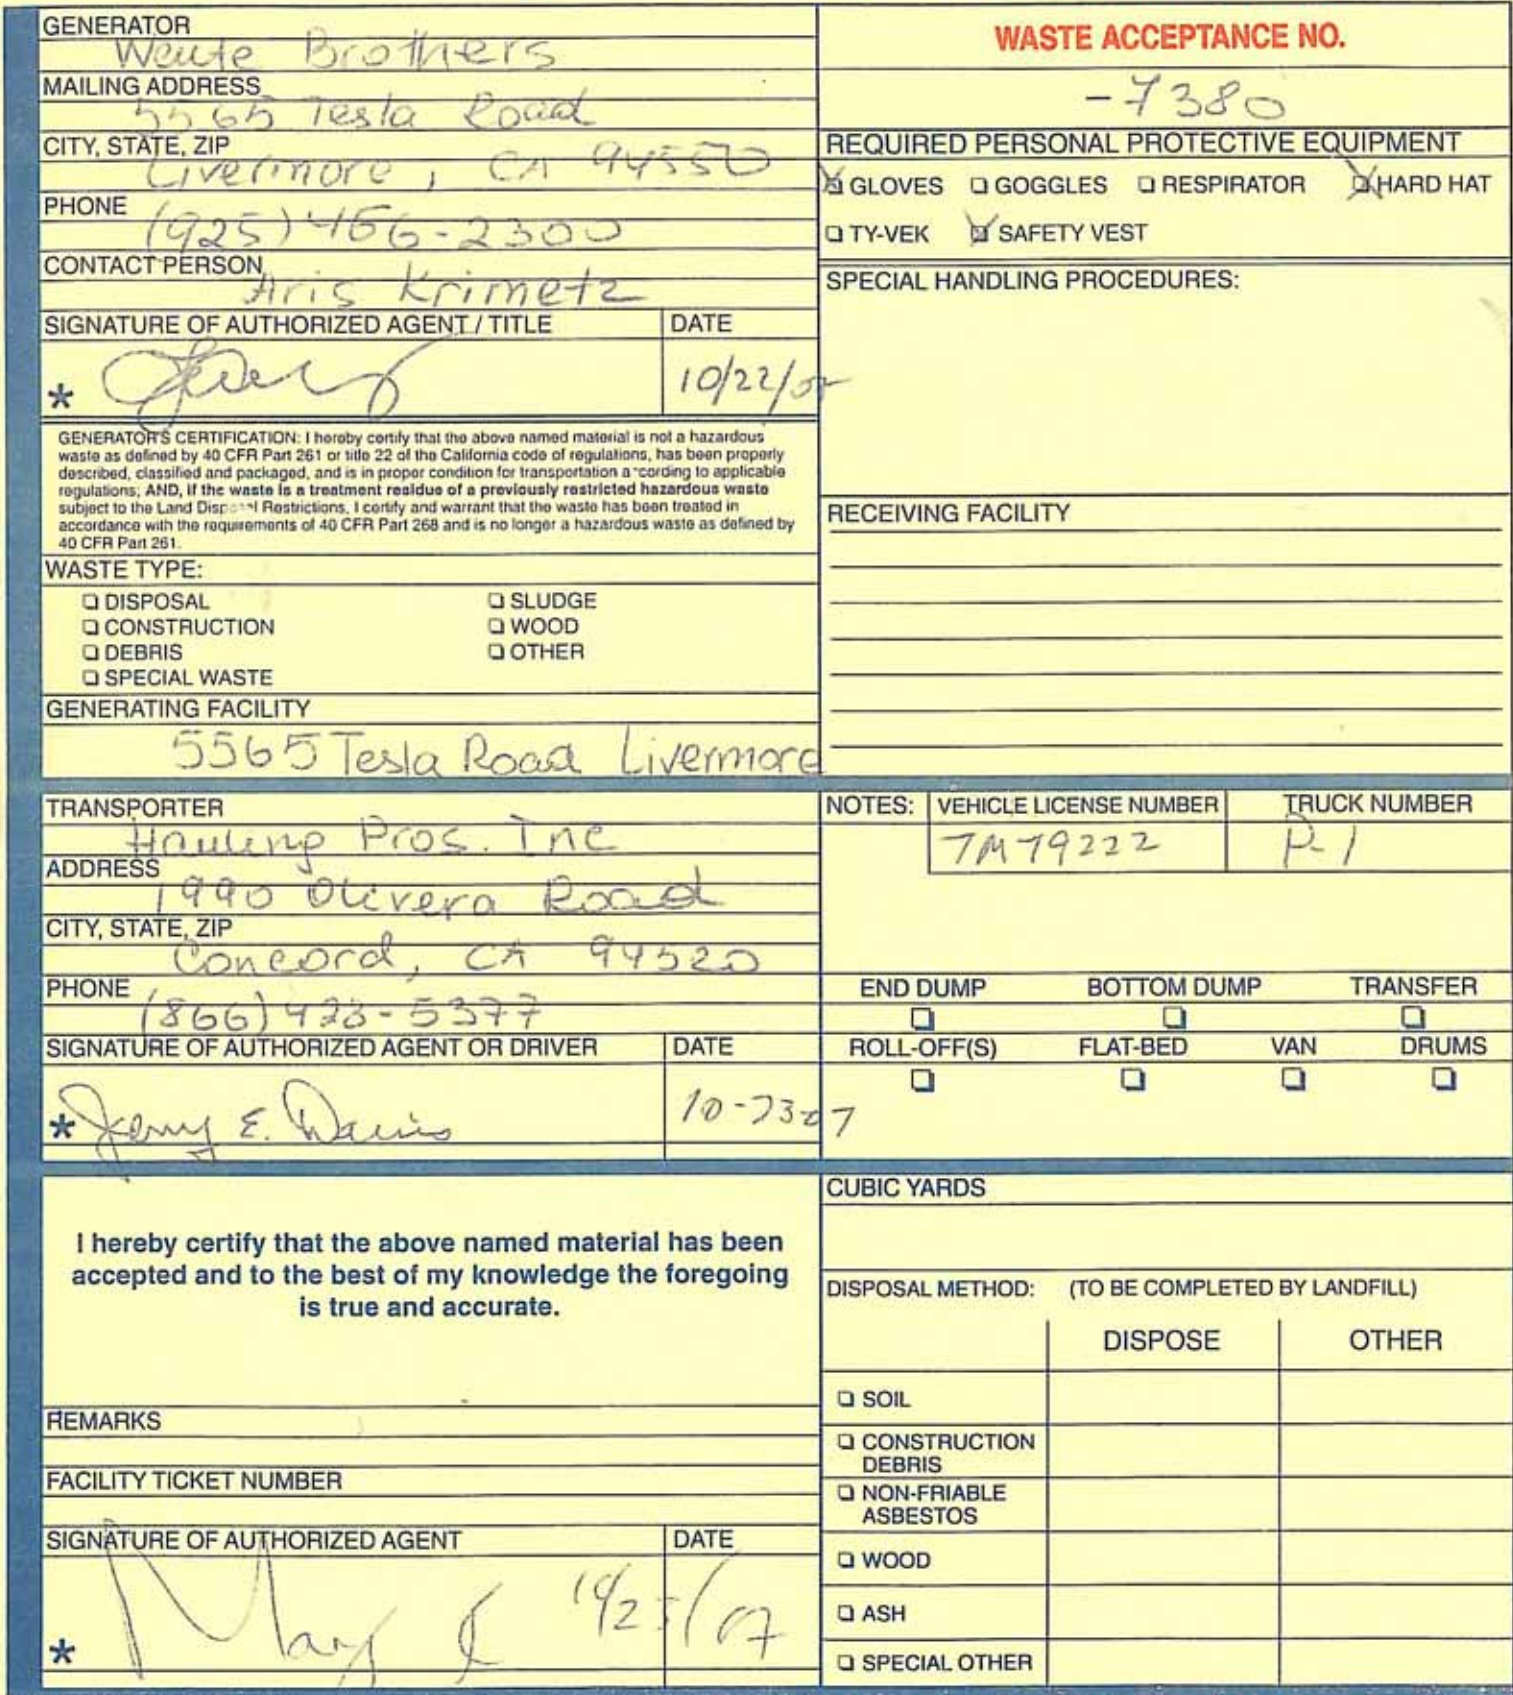 GENERATOR
Wente Brothers
MAILING ADDRESS
5565 Tesla Road
CITY, STATE, ZIP
Livermore, CA 94550
PHONE
(925) 456-2300
CONTACT PERSON
Aris Krimetz
SIGNATURE OF AUTHORIZED AGENT / TITLE DATE
* 10/22/07
GENERATOR'S CERTIFICATION: I hereby certify that the above named material is not a hazardous
waste as defined by 40 CFR Part 261 or title 22 of the California code of regulations, has been properly
described, classified and packaged, and is in proper condition for transportation according to applicable
regulations; AND, if the waste is a treatment residue of a previously restricted hazardous waste
subject to the Land Disposal Restrictions, I certify and warrant that the waste has been treated in
accordance with the requirements of 40 CFR Part 268 and is no longer a hazardous waste as defined by
40 CFR Part 261.
WASTE TYPE:
DISPOSAL SLUDGE
CONSTRUCTION WOOD
DEBRIS OTHER
SPECIAL WASTE
GENERATING FACILITY
5565 Tesla Road Livermore
WASTE ACCEPTANCE NO.
-7380
REQUIRED PERSONAL PROTECTIVE EQUIPMENT
GLOVES GOGGLES RESPIRATOR HARD HAT
TY-VEK SAFETY VEST
SPECIAL HANDLING PROCEDURES:
RECEIVING FACILITY
TRANSPORTER
Hauling Pros. Inc
ADDRESS
1990 Olivera Road
CITY, STATE, ZIP
Concord, CA 94520
PHONE
(866) 423-5377
SIGNATURE OF AUTHORIZED AGENT OR DRIVER DATE
* Jerry E. Davis 10-23-07
NOTES: VEHICLE LICENSE NUMBER TRUCK NUMBER
7M79222 P-1
END DUMP BOTTOM DUMP TRANSFER
ROLL-OFF(S) FLAT-BED VAN DRUMS
I hereby certify that the above named material has been
accepted and to the best of my knowledge the foregoing
is true and accurate.
REMARKS
FACILITY TICKET NUMBER
SIGNATURE OF AUTHORIZED AGENT DATE
* 10/23/07
CUBIC YARDS
DISPOSAL METHOD: (TO BE COMPLETED BY LANDFILL)
DISPOSE OTHER
SOIL
CONSTRUCTION
DEBRIS
NON-FRIABLE
ASBESTOS
WOOD
ASH
SPECIAL OTHER